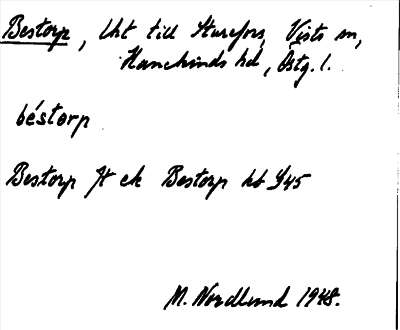 Bestorp, Lht till Sturefors, Vists sn,
Hanekinds hd, Östg. l.
béstorp
Bestorp Jt ek Bestorp hb 945
M. Nordlund 1948.